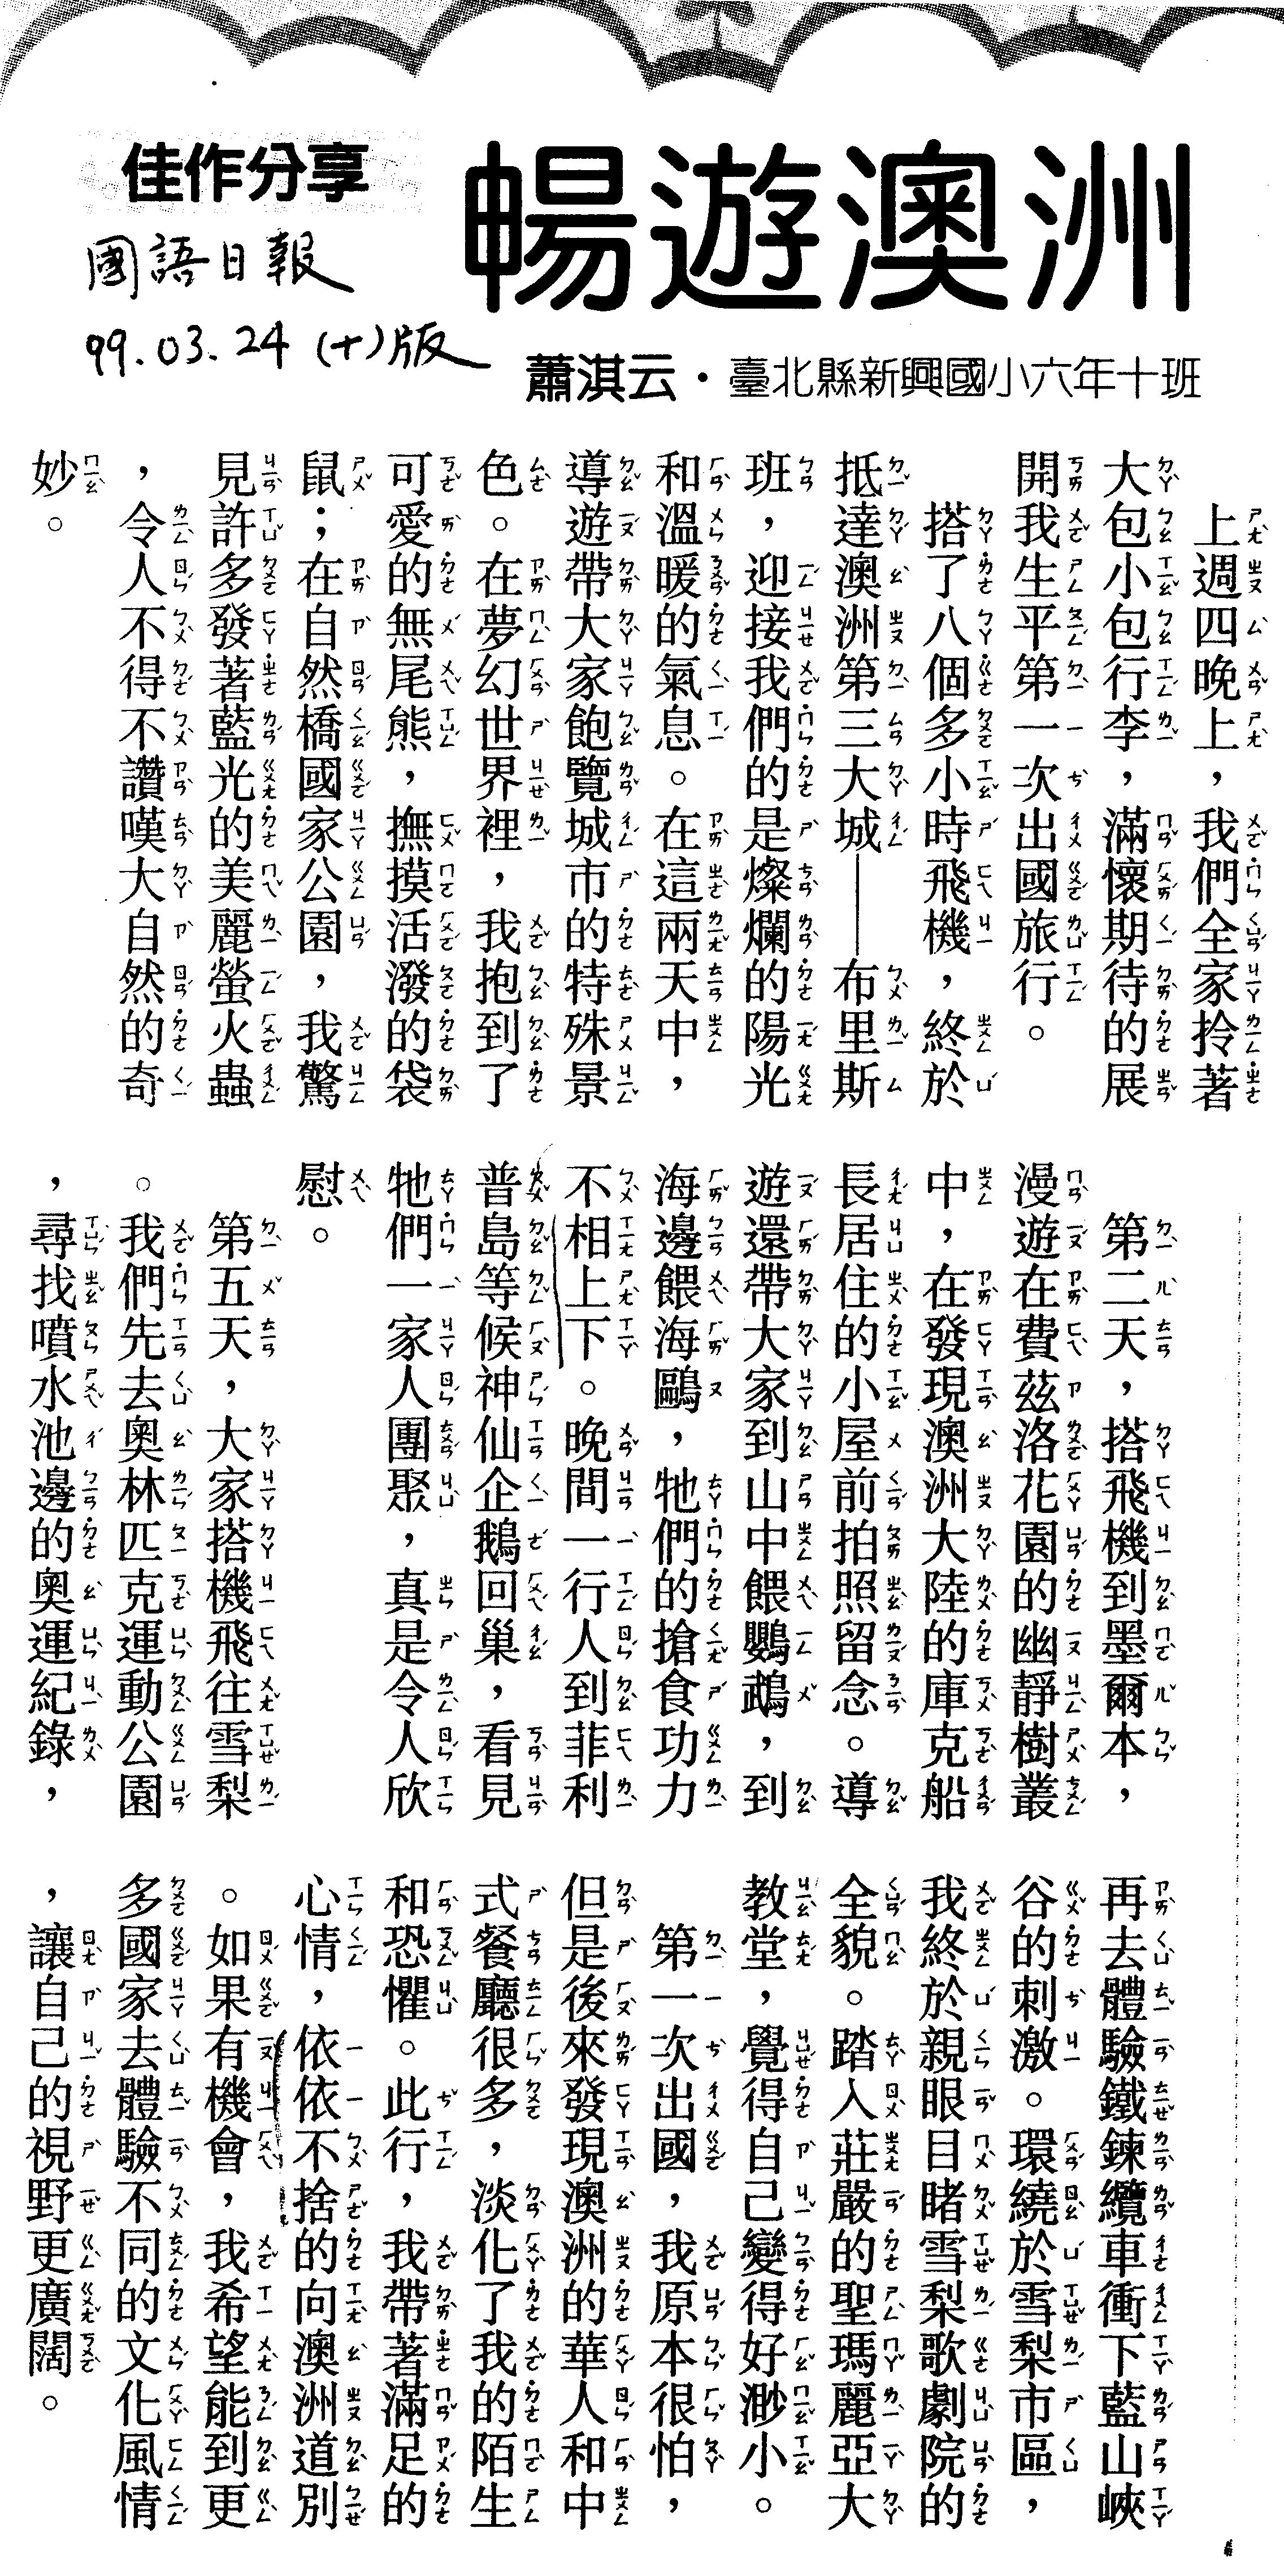 暢遊澳洲
佳作分享
國語日報
99.03.24(十)版
蕭淇云・臺北縣新興國小六年十班
上週四晚上，我們全家拎著
大包小包行李，滿懷期待的展
開我生平第一次出國旅行。
搭了八個多小時飛機，終於
抵達澳洲第三大城——布里斯
班，迎接我們的是燦爛的陽光
和溫暖的氣息。在這兩天中，
導遊帶大家飽覽城市的特殊景
色。在夢幻世界裡，我抱到了
可愛的無尾熊，撫摸活潑的袋
鼠；在自然橋國家公園，我驚
見許多發著藍光的美麗螢火蟲
，令人不得不讚嘆大自然的奇
妙。
第二天，搭飛機到墨爾本，
漫遊在費茲洛花園的幽靜樹叢
中，在發現澳洲大陸的庫克船
長居住的小屋前拍照留念。導
遊還帶大家到山中餵鸚鵡，到
海邊餵海鷗，牠們的搶食功力
不相上下。晚間一行人到菲利
普島等候神仙企鵝回巢，看見
牠們一家人團聚，真是令人欣
慰。
第五天，大家搭機飛往雪梨
。我們先去奧林匹克運動公園
，尋找噴水池邊的奧運紀錄，
再去體驗鐵鍊纜車衝下藍山峽
谷的刺激。環繞於雪梨市區，
我終於親眼目睹雪梨歌劇院的
全貌。踏入莊嚴的聖瑪麗亞大
教堂，覺得自己變得好渺小。
第一次出國，我原本很怕，
但是後來發現澳洲的華人和中
式餐廳很多，淡化了我的陌生
和恐懼。此行，我帶著滿足的
心情，依依不捨的向澳洲道別
。如果有機會，我希望能到更
多國家去體驗不同的文化風情
，讓自己的視野更廣闊。